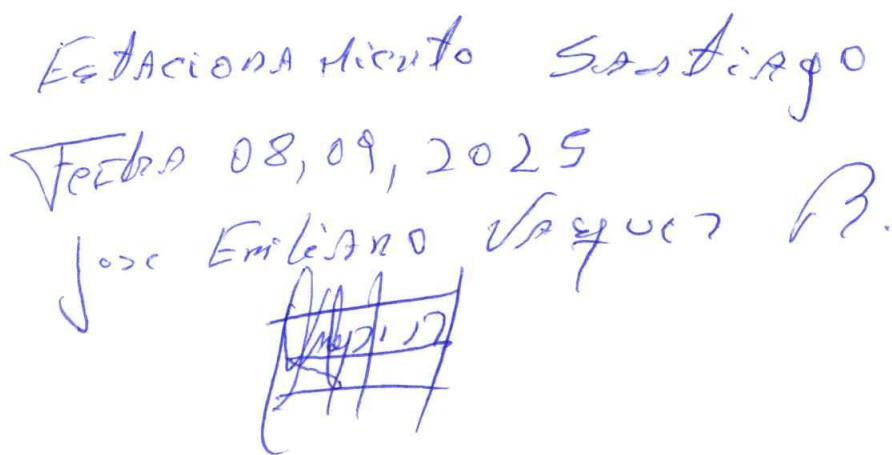 Estacionamiento Santiago
Fecha 08,09,2025
Jose Emiliano Vasquez R.